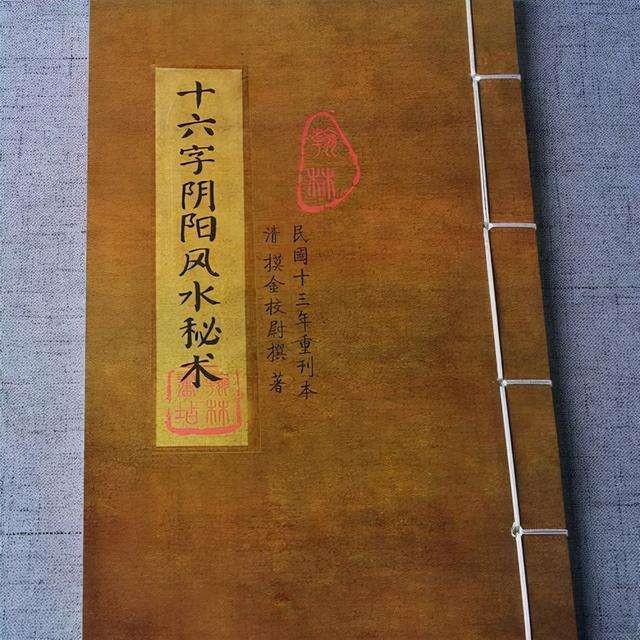 十六字阴阳风水秘术
翰林
民國十三年重刊本
清 摸金校尉撰 著